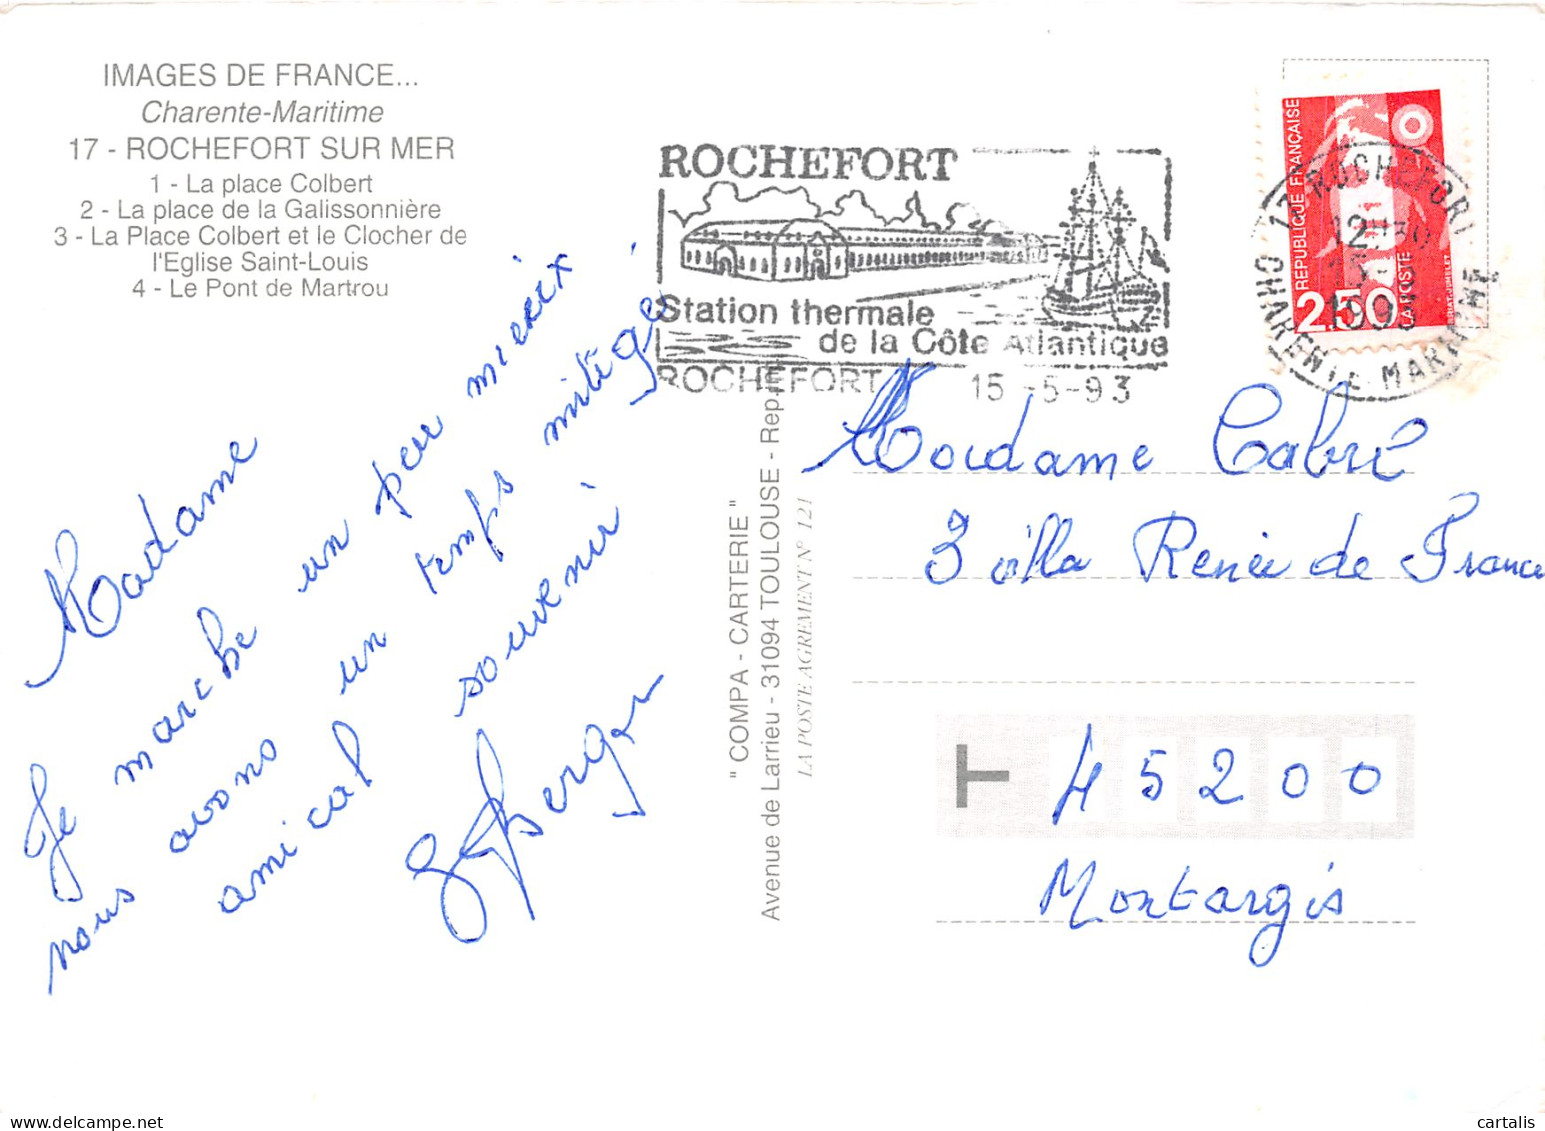 IMAGES DE FRANCE...
Charente-Maritime
17 - ROCHEFORT SUR MER
1 - La place Colbert
2 - La place de la Galissonnière
3 - La Place Colbert et le Clocher de
l'Eglise Saint-Louis
4 - Le Pont de Martrou
Madame
Je marche un peu mieux
nous avons un temps mitigé
amical souvenir
" COMPA - CARTERIE "
Avenue de Larrieu - 31094 TOULOUSE - Rep.
LA POSTE AGREMENT N° 121
ROCHEFORT
Station thermale
de la Côte Atlantique
ROCHEFORT 15 -5-93
REPUBLIQUE FRANÇAISE
2,50 LA POSTE
17 ROCHEFORT
CHARENTE MARITIME
Madame Cabré
3 villa Renée de France
45200
Montargis
cartalis